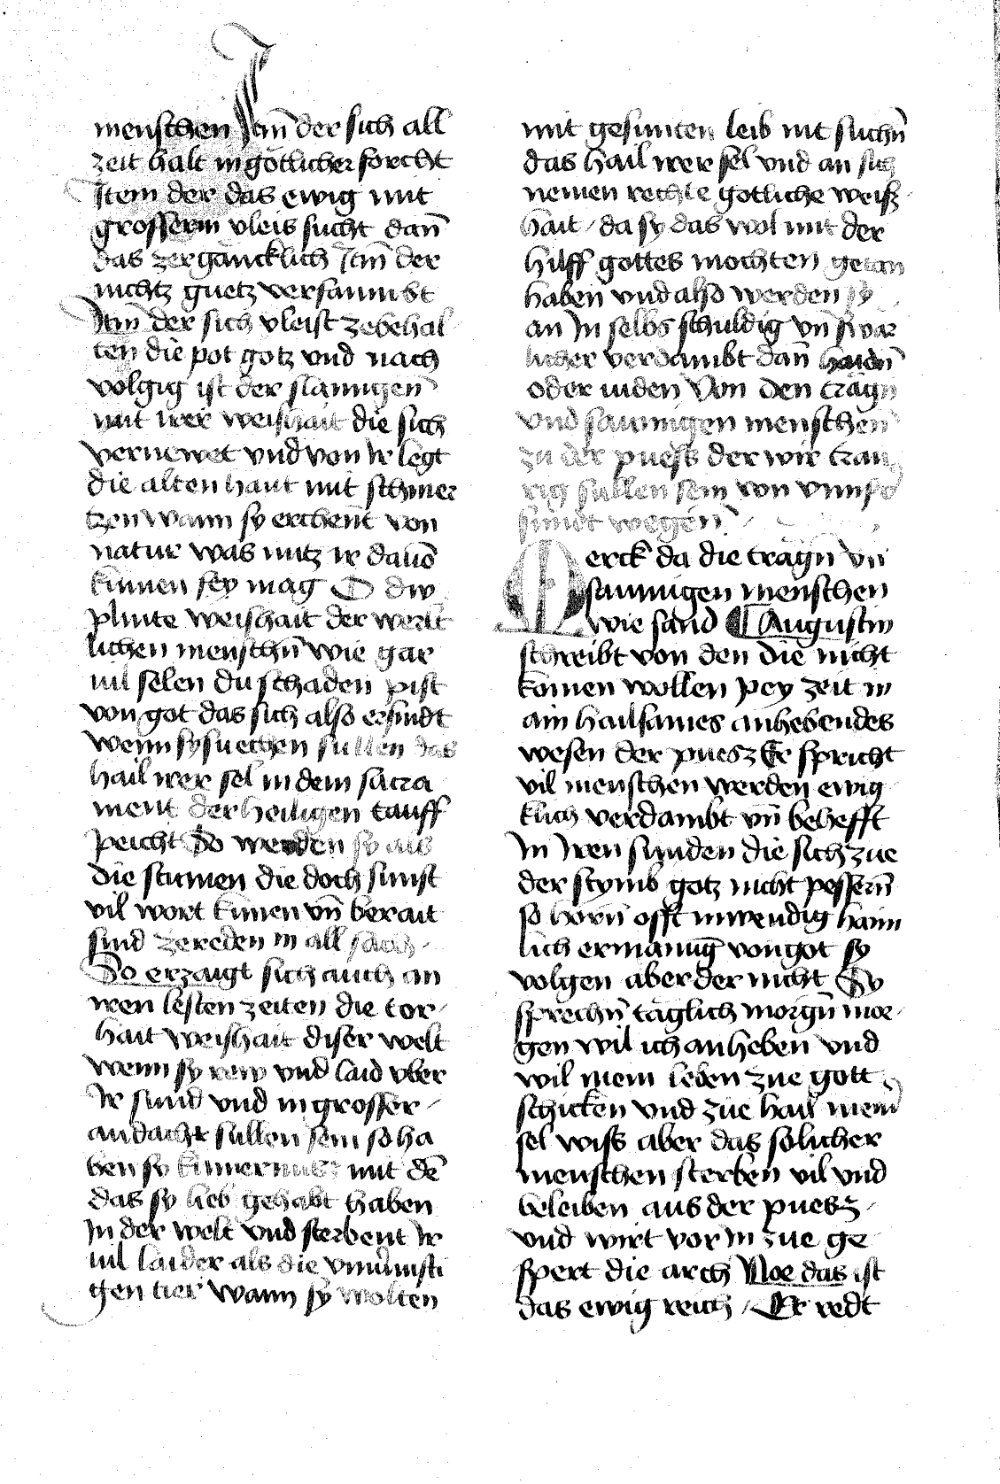 menschen Itm̄ der sich all
zeit halt in götlicher forcht
Item der das ewig mit
grosserm vleis sucht dan̄
das zergäncklich Itm̄ der
nichtz guetz versaumbt
Itm̄ der sich vleist zebehal
ten die pot gotz vnd nach
volgig ist der slanngen̄
mit irer weishait die sich
vernewet vnd von ir legt
die alten haut mit schmer
tzen wann sy erchent von
natur was nutz ir dauō
kumen sey mag O dw
plinte weishait der werlt
lichen menschn̄ wie gar
uil selen du schaden pist
von got das sich also erfindt
wenn sy suechen sullen das
hail irer sel in dem sacra
ment der heiligen tauff
peicht So werden sy als
die stumen die doch sunst
vil wort kunen vn̄ berait
sind zereden in all sach
So erzaigt sich auch an
iren lesten zeiten die tor
hait weishait diser welt
wenn sy rew vnd laid vber
Ir sund vnd in grosser
andacht sullen sein so ha
ben sy kumernus mit dē
das sy lieb gehabt haben
In der welt vnd sterbent Ir
uil laider als die vnuernufti
gen tier wann sy wolten
mit gesunten leib nit suchn̄
das hail irer sel vnd an sich
nemen rechte gotliche weiß
hait da sy das wol mit der
hilff gottes mochten getan
haben vnd also werden sy
an In selbs schuldig vn̄ swär
licher verdambt dan̄ haidn̄
oder iuden Von den trägn̄
vnd saumigen menschen
zu der puess der wir trau
rig sullen sein von vnnser
sundt wegen
Merck da die trägn̄ vn̄
saumigen menschen
wie sand Augustin
schreibt von den die nicht
komen wollen pey zeit in
ain hailsames anhebendes
wesen der puesz Er spricht
vil menschen werden ewig
klich verdambt vn̄ behefft
In Iren sunden die sich zue
der stymb gotz nicht pessern̄
so horn̄ offt inwendig haim
lich ermanūg von got sy
volgen aber der nicht Sy
sprechn̄ täglich morgn̄ mor
gen wil ich anheben vnd
wil mein leben zue gott
schicken vnd zue hail meiner
sel wiss aber das solicher
menschen sterben vil vnd
beleiben aus der puesz
vnd wirt vor In zue ge
spert die arch Noe das ist
das ewig reich Er redt